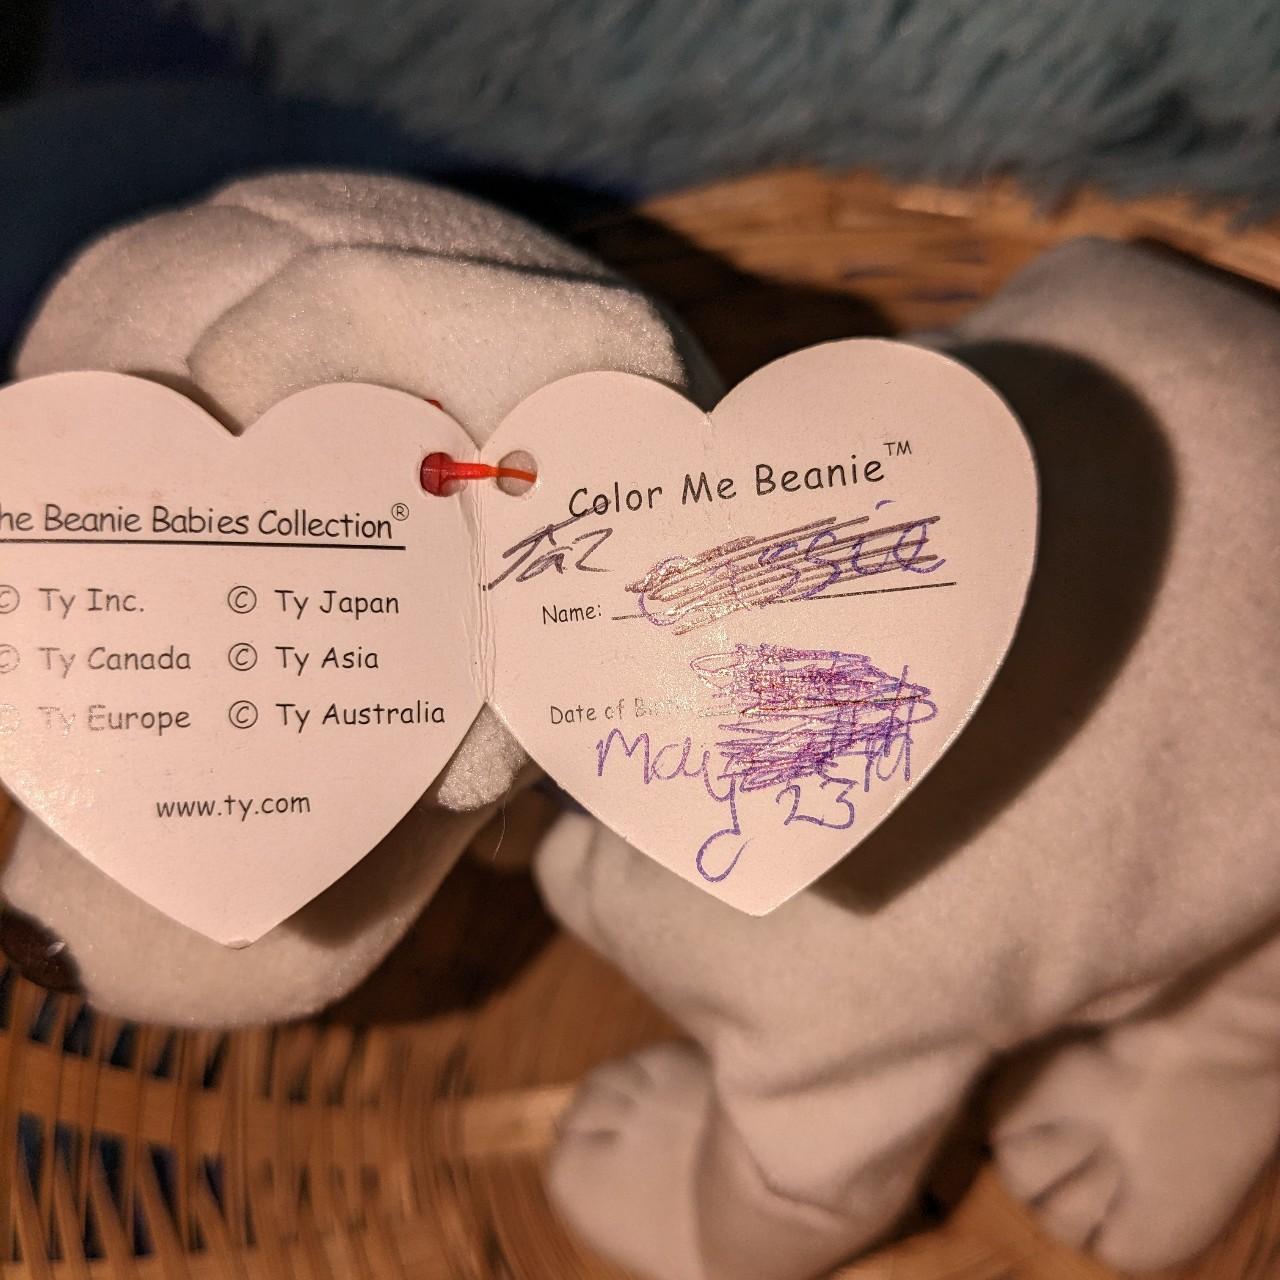 he Beanie Babies Collection®
© Ty Inc. © Ty Japan
© Ty Canada © Ty Asia
© Ty Europe © Ty Australia
www.ty.com
Color Me Beanie™
Taz
Name:
Date of Birth
May
23